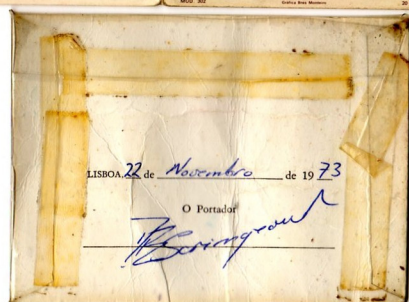 MOD. 302 Gráfica Brás Monteiro 20
LISBOA, 22 de Novembro de 1973
O Portador